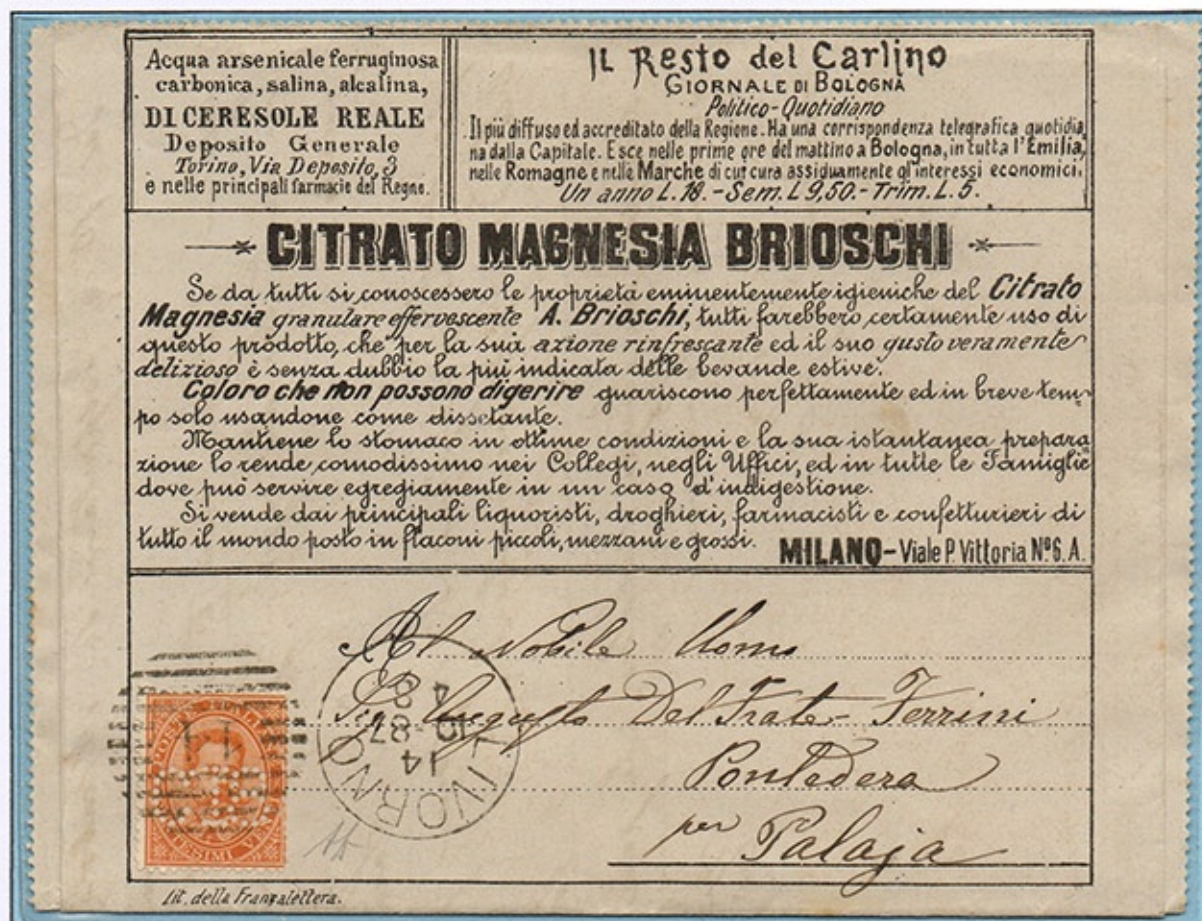 Acqua arsenicale ferruginosa
carbonica, salina, alcalina,
DI CERESOLE REALE
Deposito Generale
Torino, Via Deposito, 3
e nelle principali farmacie del Regno.
IL Resto del Carlino
GIORNALE DI BOLOGNA
Politico-Quotidiano
Il più diffuso ed accreditato della Regione. Ha una corrispondenza telegrafica quotidia
na dalla Capitale. Esce nelle prime ore del mattino a Bologna, in tutta l'Emilia,
nelle Romagne e nelle Marche di cui cura assiduamente gl'interessi economici.
Un anno L. 18. - Sem. L 9,50. - Trim. L. 5.
CITRATO MAGNESIA BRIOSCHI
Se da tutti si conoscessero le proprietà eminentemente igieniche del Citrato
Magnesia granulare effervescente A. Brioschi, tutti farebbero certamente uso di
questo prodotto, che per la sua azione rinfrescante ed il suo gusto veramente
delizioso è senza dubbio la più indicata delle bevande estive.
Coloro che non possono digerire guariscono perfettamente ed in breve tem-
po solo usandone come dissetante.
Mantiene lo stomaco in ottime condizioni e la sua istantanea prepara
zione lo rende comodissimo nei Collegi, negli Uffici, ed in tutte le Famiglie
dove può servire egregiamente in un caso d'indigestione.
Si vende dai principali liquoristi, droghieri, farmacisti e confetturieri di
tutto il mondo posto in flaconi piccoli, mezzani e grossi.
MILANO - Viale P. Vittoria Nº 6. A.
Al Nobile Uomo
Sig Augusto Del Frate-Ferrini
Pontedera
per Palaja
LIVORNO
14
10-87
14
Lit. della Franzalettera.